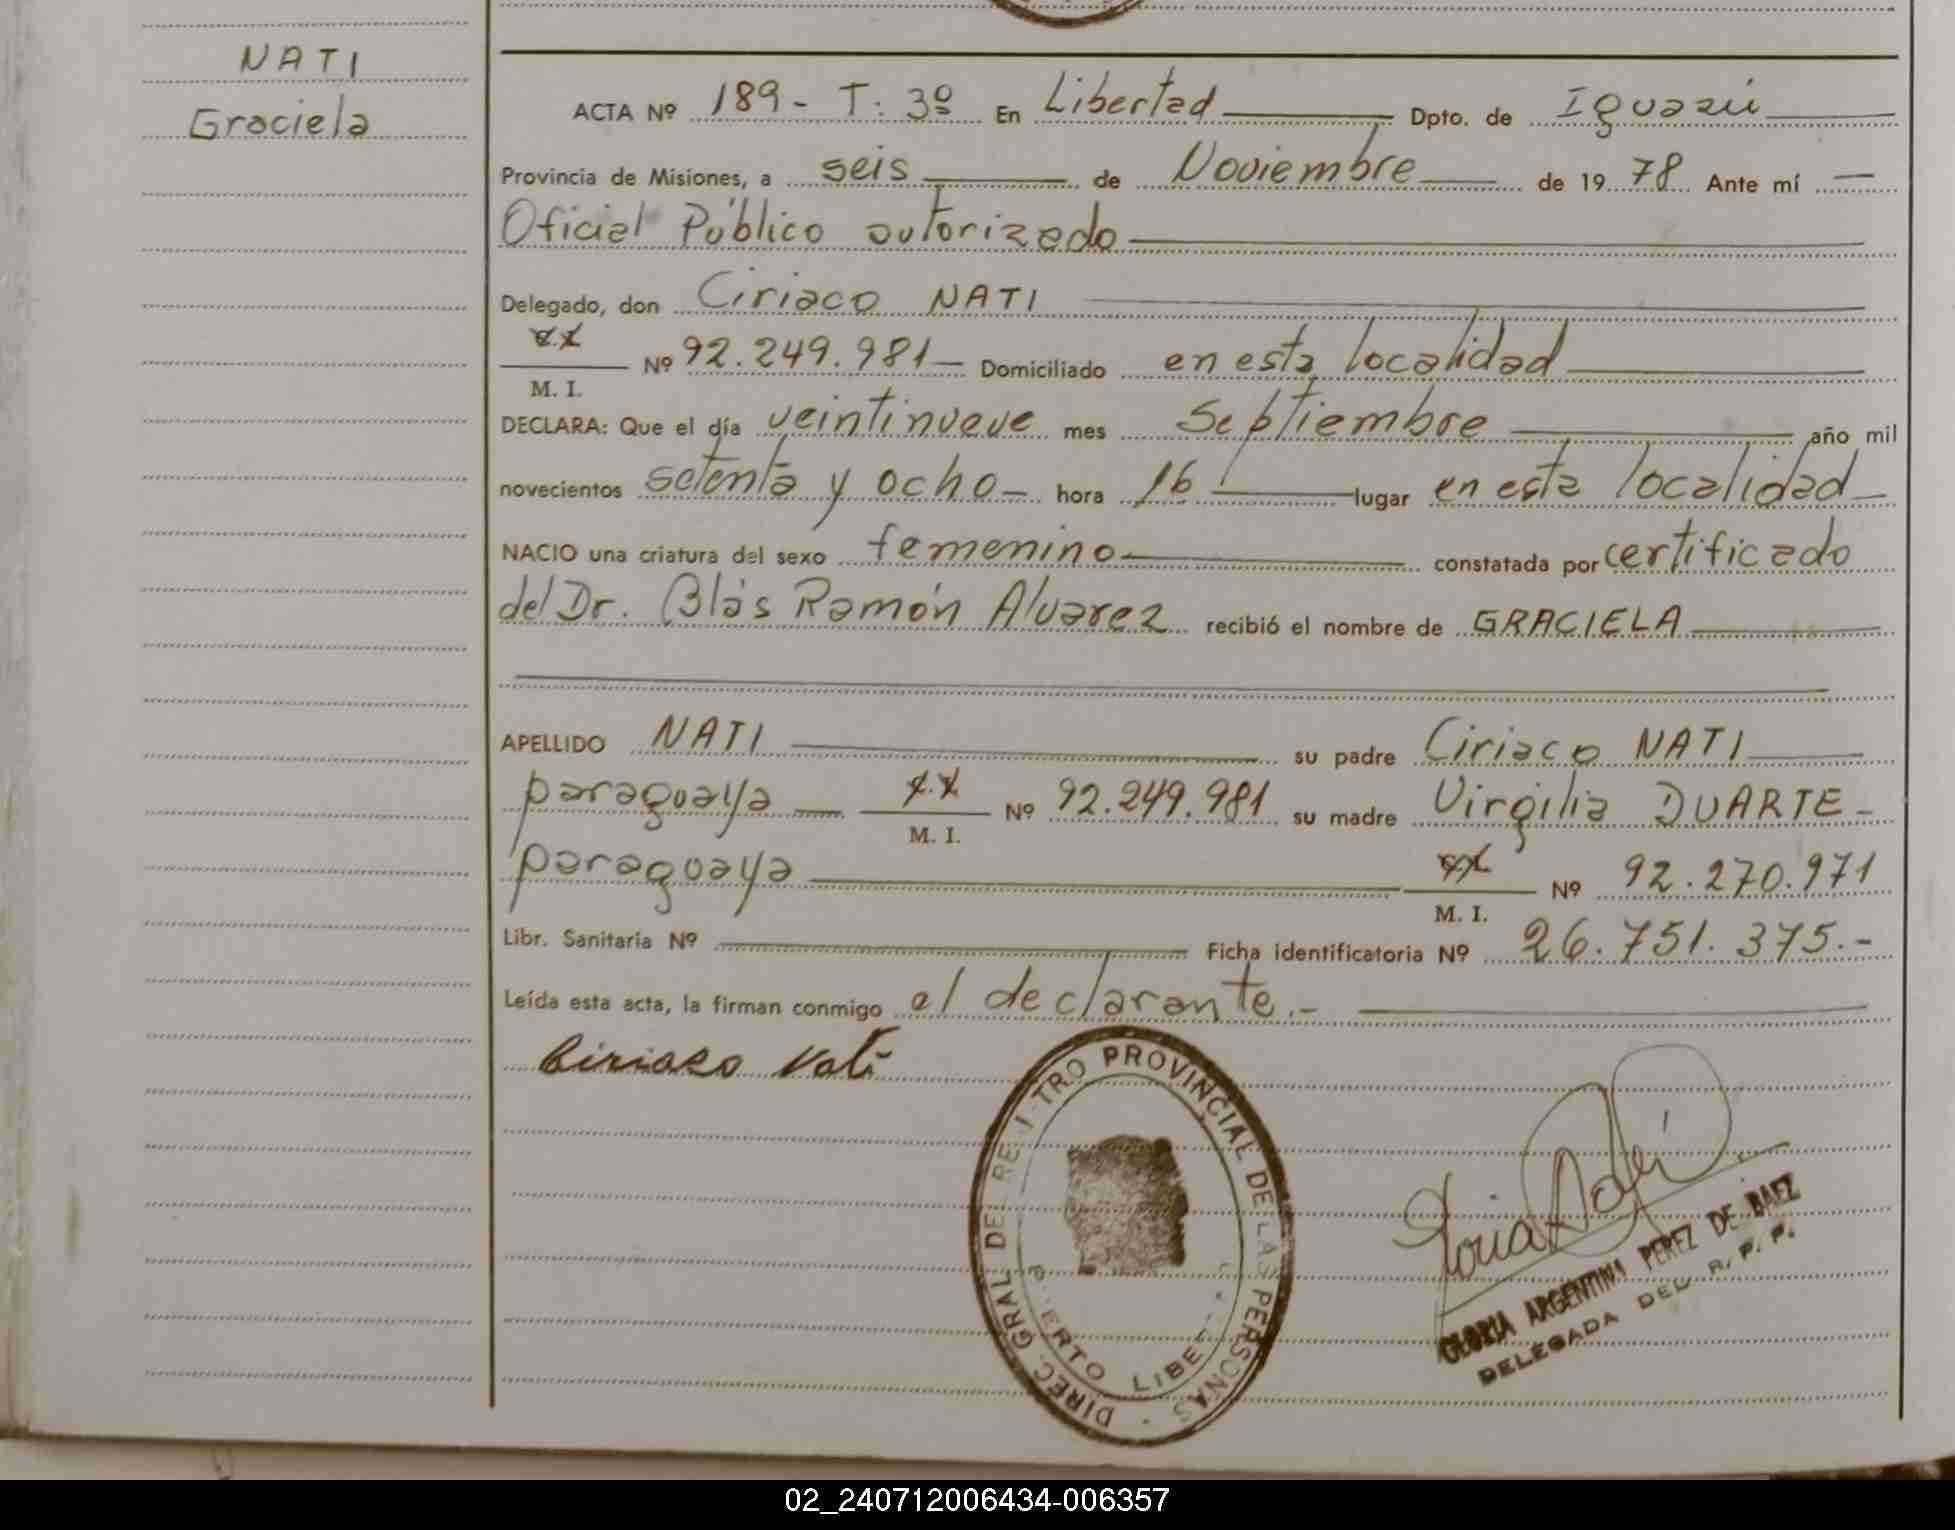 NATI
Graciela
ACTA Nº 189 - T: 3º En Libertad Dpto. de Iguazú
Provincia de Misiones, a seis de Noviembre de 1978 Ante mí
Oficial Público autorizado
Delegado, don Ciriaco NATI
M. I. Nº 92.249.981 Domiciliado en esta localidad
DECLARA: Que el día veintinueve mes Septiembre año mil
novecientos setenta y ocho hora 16 lugar en esta localidad
NACIO una criatura del sexo femenino constatada por certificado
del Dr. Blás Ramón Alvarez recibió el nombre de GRACIELA
APELLIDO NATI su padre Ciriaco NATI
paraguaya M. I. Nº 92.249.981 su madre Virgilia DUARTE
paraguaya M. I. Nº 92.270.971
Libr. Sanitaria Nº Ficha identificatoria Nº 26.751.375.-
Leída esta acta, la firman conmigo el declarante.-
Ciriaco Nati
DIREC. GRAL. DEL REGISTRO PROVINCIAL DE LAS PERSONAS
PUERTO LIBERTAD
GLORIA ARGENTINA PEREZ DE BAEZ
DELEGADA DEL R. P. P.
02_240712006434-006357